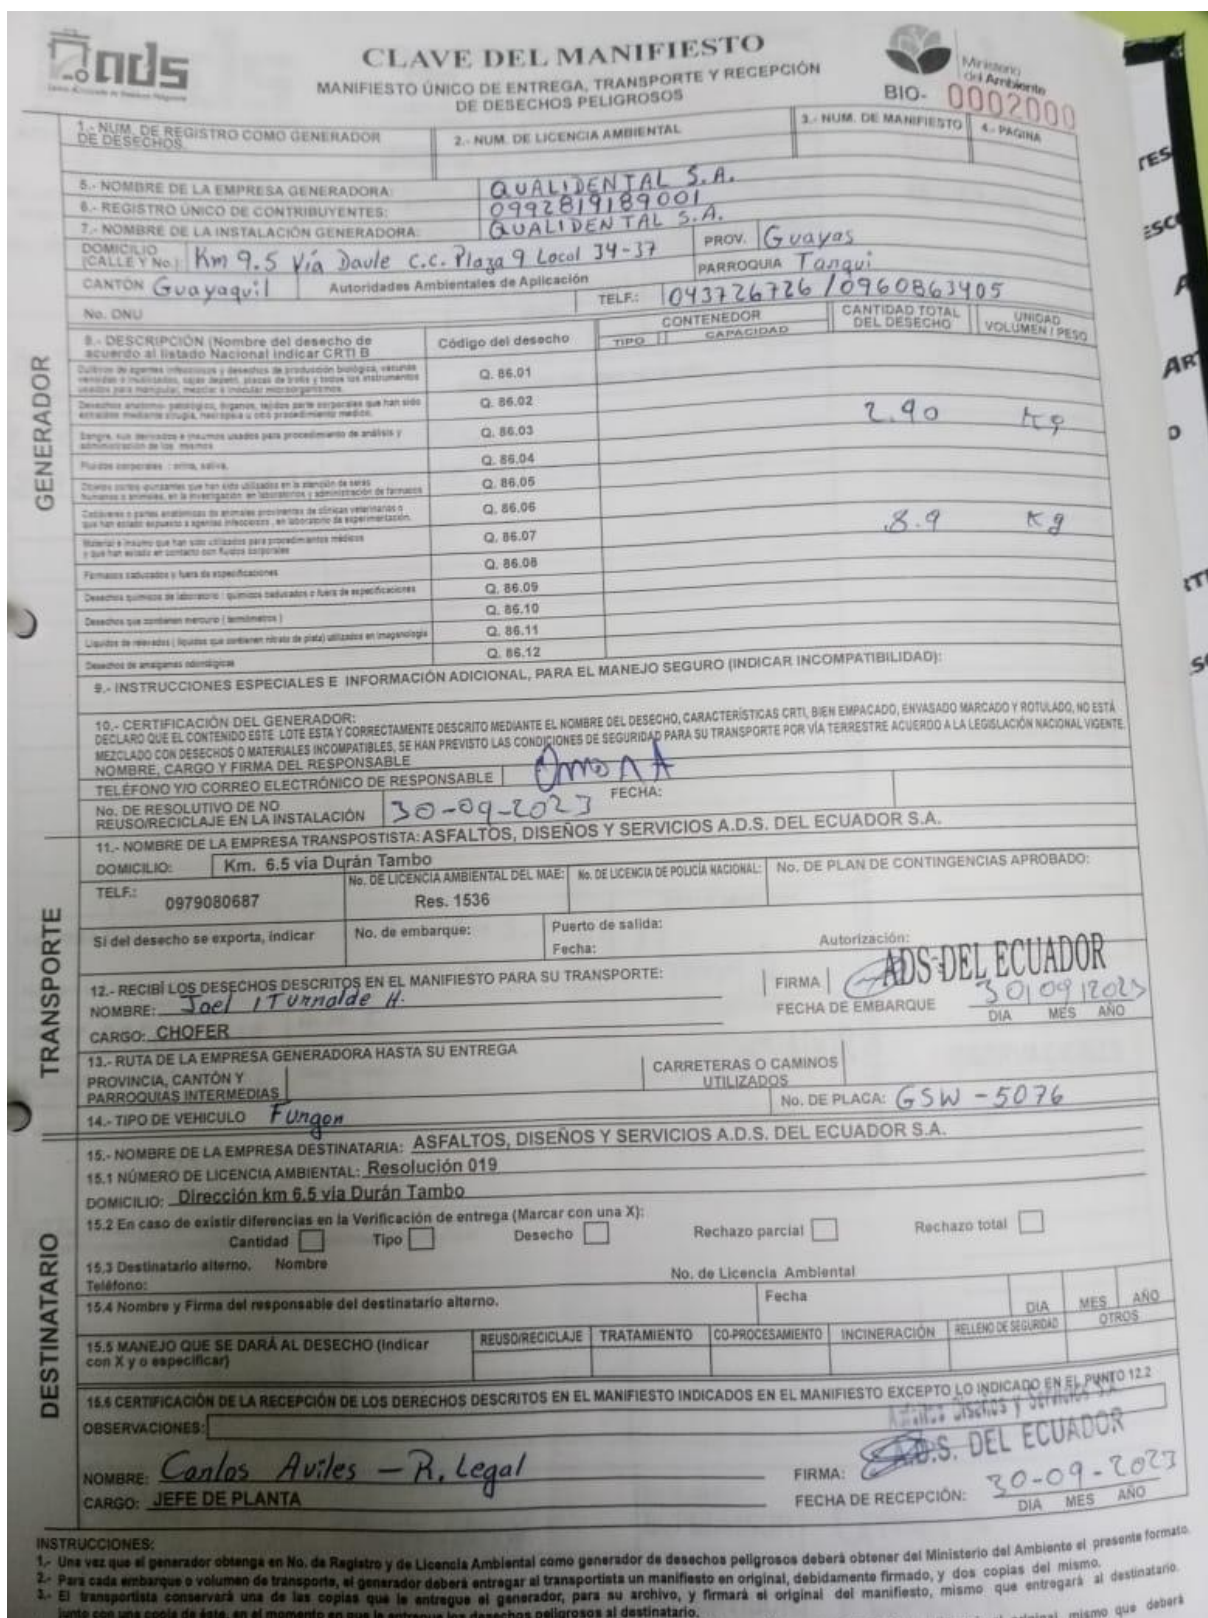 ads
CLAVE DEL MANIFIESTO
MANIFIESTO ÚNICO DE ENTREGA, TRANSPORTE Y RECEPCIÓN
DE DESECHOS PELIGROSOS
Ministerio
del Ambiente
BIO- 0002000
1.- NUM. DE REGISTRO COMO GENERADOR
DE DESECHOS.
2.- NUM. DE LICENCIA AMBIENTAL
3.- NUM. DE MANIFIESTO
4.- PAGINA
5.- NOMBRE DE LA EMPRESA GENERADORA: QUALIDENTAL S.A.
6.- REGISTRO ÚNICO DE CONTRIBUYENTES: 0992819189001
7.- NOMBRE DE LA INSTALACIÓN GENERADORA: QUALIDENTAL S.A.
DOMICILIO
(CALLE Y No.) Km 9.5 Vía Daule C.C. Plaza 9 Local 34-37 PROV. Guayas
CANTÓN Guayaquil Autoridades Ambientales de Aplicación PARROQUIA Tarqui
No. ONU TELF.: 043726726 / 0960863405
8.- DESCRIPCIÓN (Nombre del desecho de
acuerdo al listado Nacional indicar CRTI B
Código del desecho
CONTENEDOR
TIPO CAPACIDAD
CANTIDAD TOTAL
DEL DESECHO
UNIDAD
VOLUMEN / PESO
GENERADOR
Q. 86.01
Q. 86.02
2.90 Kg
Sangre, sus derivados e insumos usados para procedimiento de análisis y
administración de los mismos
Q. 86.03
Fluidos corporales : orina, saliva.
Q. 86.04
Objetos corto-punzantes que han sido utilizados en la atención de seres
humanos o animales, en la investigación, en laboratorios y administración de fármacos
Q. 86.05
Cadáveres o partes anatómicas de animales provenientes de clínicas veterinarias o
que han estado expuesto a agentes infecciosos, en laboratorio de experimentación.
Q. 86.06
8.9 Kg
Material e insumo que han sido utilizados para procedimientos médicos
y que han estado en contacto con fluidos corporales
Q. 86.07
Fármacos caducados y fuera de especificaciones
Q. 86.08
Desechos químicos de laboratorio : químicos caducados o fuera de especificaciones
Q. 86.09
Desechos que contienen mercurio ( termómetros )
Q. 86.10
Líquidos de revelados ( líquidos que contienen nitrato de plata) utilizados en imagenología
Q. 86.11
Desechos de amalgamas odontológicas
Q. 86.12
9.- INSTRUCCIONES ESPECIALES E INFORMACIÓN ADICIONAL, PARA EL MANEJO SEGURO (INDICAR INCOMPATIBILIDAD):
10.- CERTIFICACIÓN DEL GENERADOR:
DECLARO QUE EL CONTENIDO ESTE LOTE ESTA Y CORRECTAMENTE DESCRITO MEDIANTE EL NOMBRE DEL DESECHO, CARACTERÍSTICAS CRTI, BIEN EMPACADO, ENVASADO MARCADO Y ROTULADO, NO ESTÁ
MEZCLADO CON DESECHOS O MATERIALES INCOMPATIBLES, SE HAN PREVISTO LAS CONDICIONES DE SEGURIDAD PARA SU TRANSPORTE POR VÍA TERRESTRE ACUERDO A LA LEGISLACIÓN NACIONAL VIGENTE.
NOMBRE, CARGO Y FIRMA DEL RESPONSABLE
TELÉFONO Y/O CORREO ELECTRÓNICO DE RESPONSABLE
No. DE RESOLUTIVO DE NO
REUSO/RECICLAJE EN LA INSTALACIÓN
30-09-2023 FECHA:
TRANSPORTE
11.- NOMBRE DE LA EMPRESA TRANSPOSTISTA: ASFALTOS, DISEÑOS Y SERVICIOS A.D.S. DEL ECUADOR S.A.
DOMICILIO: Km. 6.5 via Durán Tambo
TELF.: 0979080687
No. DE LICENCIA AMBIENTAL DEL MAE:
Res. 1536
No. DE LICENCIA DE POLICÍA NACIONAL:
No. DE PLAN DE CONTINGENCIAS APROBADO:
Si del desecho se exporta, indicar
No. de embarque:
Puerto de salida:
Fecha:
Autorización:
12.- RECIBÍ LOS DESECHOS DESCRITOS EN EL MANIFIESTO PARA SU TRANSPORTE:
FIRMA ADS DEL ECUADOR
NOMBRE: Joel ITurralde H.
FECHA DE EMBARQUE 30/09/2023
DIA MES AÑO
CARGO: CHOFER
13.- RUTA DE LA EMPRESA GENERADORA HASTA SU ENTREGA
PROVINCIA, CANTÓN Y
PARROQUIAS INTERMEDIAS
CARRETERAS O CAMINOS
UTILIZADOS
14.- TIPO DE VEHICULO Furgon
No. DE PLACA: GSW - 5076
DESTINATARIO
15.- NOMBRE DE LA EMPRESA DESTINATARIA: ASFALTOS, DISEÑOS Y SERVICIOS A.D.S. DEL ECUADOR S.A.
15.1 NÚMERO DE LICENCIA AMBIENTAL: Resolución 019
DOMICILIO: Dirección km 6.5 via Durán Tambo
15.2 En caso de existir diferencias en la Verificación de entrega (Marcar con una X):
Cantidad Tipo Desecho Rechazo parcial Rechazo total
15.3 Destinatario alterno. Nombre
Teléfono: No. de Licencia Ambiental
15.4 Nombre y Firma del responsable del destinatario alterno. Fecha
DIA MES AÑO
15.5 MANEJO QUE SE DARÁ AL DESECHO (Indicar
con X y o especificar)
REUSO/RECICLAJE TRATAMIENTO CO-PROCESAMIENTO INCINERACIÓN RELLENO DE SEGURIDAD OTROS
15.6 CERTIFICACIÓN DE LA RECEPCIÓN DE LOS DERECHOS DESCRITOS EN EL MANIFIESTO INDICADOS EN EL MANIFIESTO EXCEPTO LO INDICADO EN EL PUNTO 12.2
OBSERVACIONES:
Asfaltos Diseños y Servicios S.A.
A.D.S. DEL ECUADOR
NOMBRE: Carlos Aviles - R. Legal
FIRMA:
CARGO: JEFE DE PLANTA
FECHA DE RECEPCIÓN: 30-09-2023
DIA MES AÑO
INSTRUCCIONES:
1.- Una vez que el generador obtenga en No. de Registro y de Licencia Ambiental como generador de desechos peligrosos deberá obtener del Ministerio del Ambiente el presente formato.
2.- Para cada embarque o volumen de transporte, el generador deberá entregar al transportista un manifiesto en original, debidamente firmado, y dos copias del mismo.
3.- El transportista conservará una de las copias que le entregue el generador, para su archivo, y firmará el original del manifiesto, mismo que entregará al destinatario.
junto con una copia de éste, en el momento en que le entregue los desechos peligrosos al destinatario.